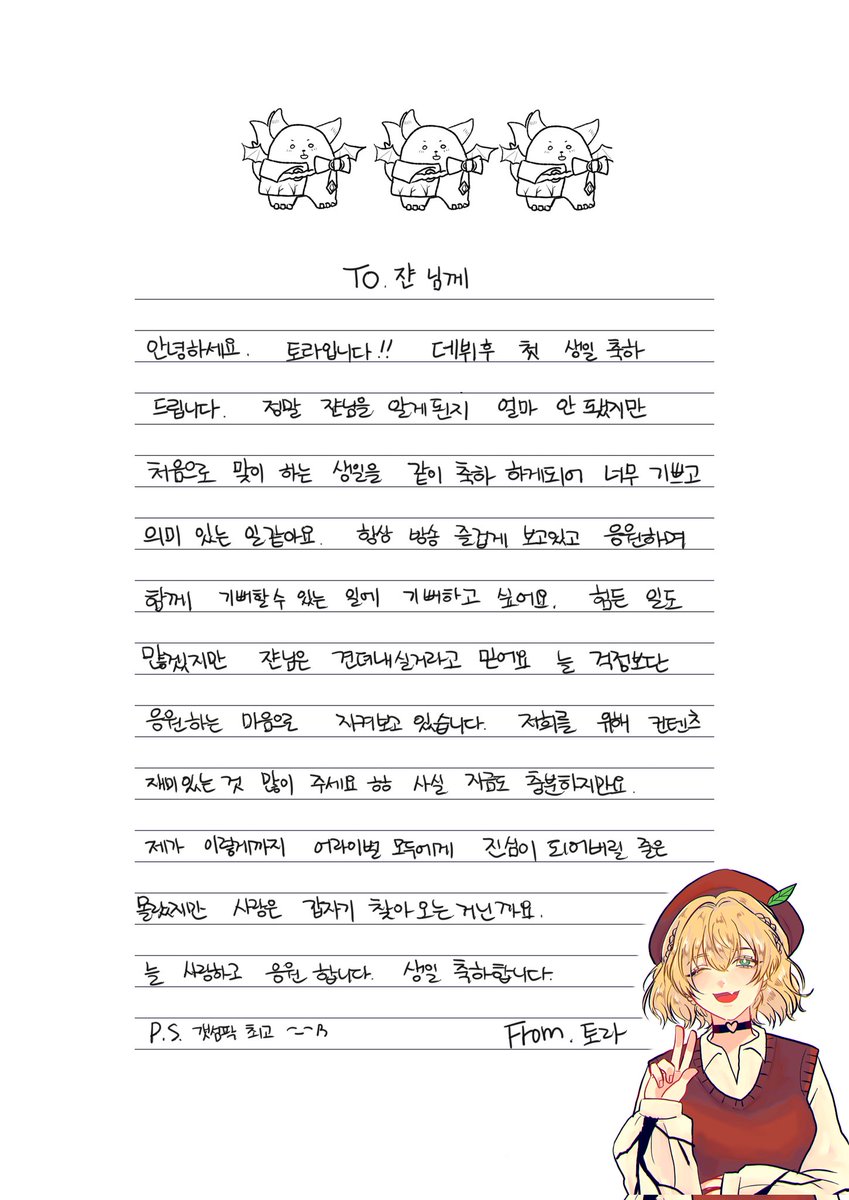 TO. 쟌 님께
안녕하세요. 토라입니다!! 데뷔후 첫 생일 축하
드립니다. 정말 쟌님을 알게된지 얼마 안 됐지만
처음으로 맞이 하는 생일을 같이 축하 하게되어 너무 기쁘고
의미 있는 일같아요. 항상 방송 즐겁게 보고있고 응원하며
함께 기뻐할수 있는 일에 기뻐하고 싶어요. 힘든 일도
많겠지만 쟌님은 견뎌내실거라고 믿어요 늘 걱정보단
응원하는 마음으로 지켜보고 있습니다. 저희를 위해 컨텐츠
재미있는 것 많이 주세요 ㅎㅎ 사실 지금도 충분하지만요.
제가 이렇게까지 어라이벌 모두에게 진심이 되어버릴 줄은
몰랐지만 사랑은 갑자기 찾아오는거닌까요.
늘 사랑하고 응원 합니다. 생일 축하합니다.
P.S. 갯성팍 최고
From. 토라